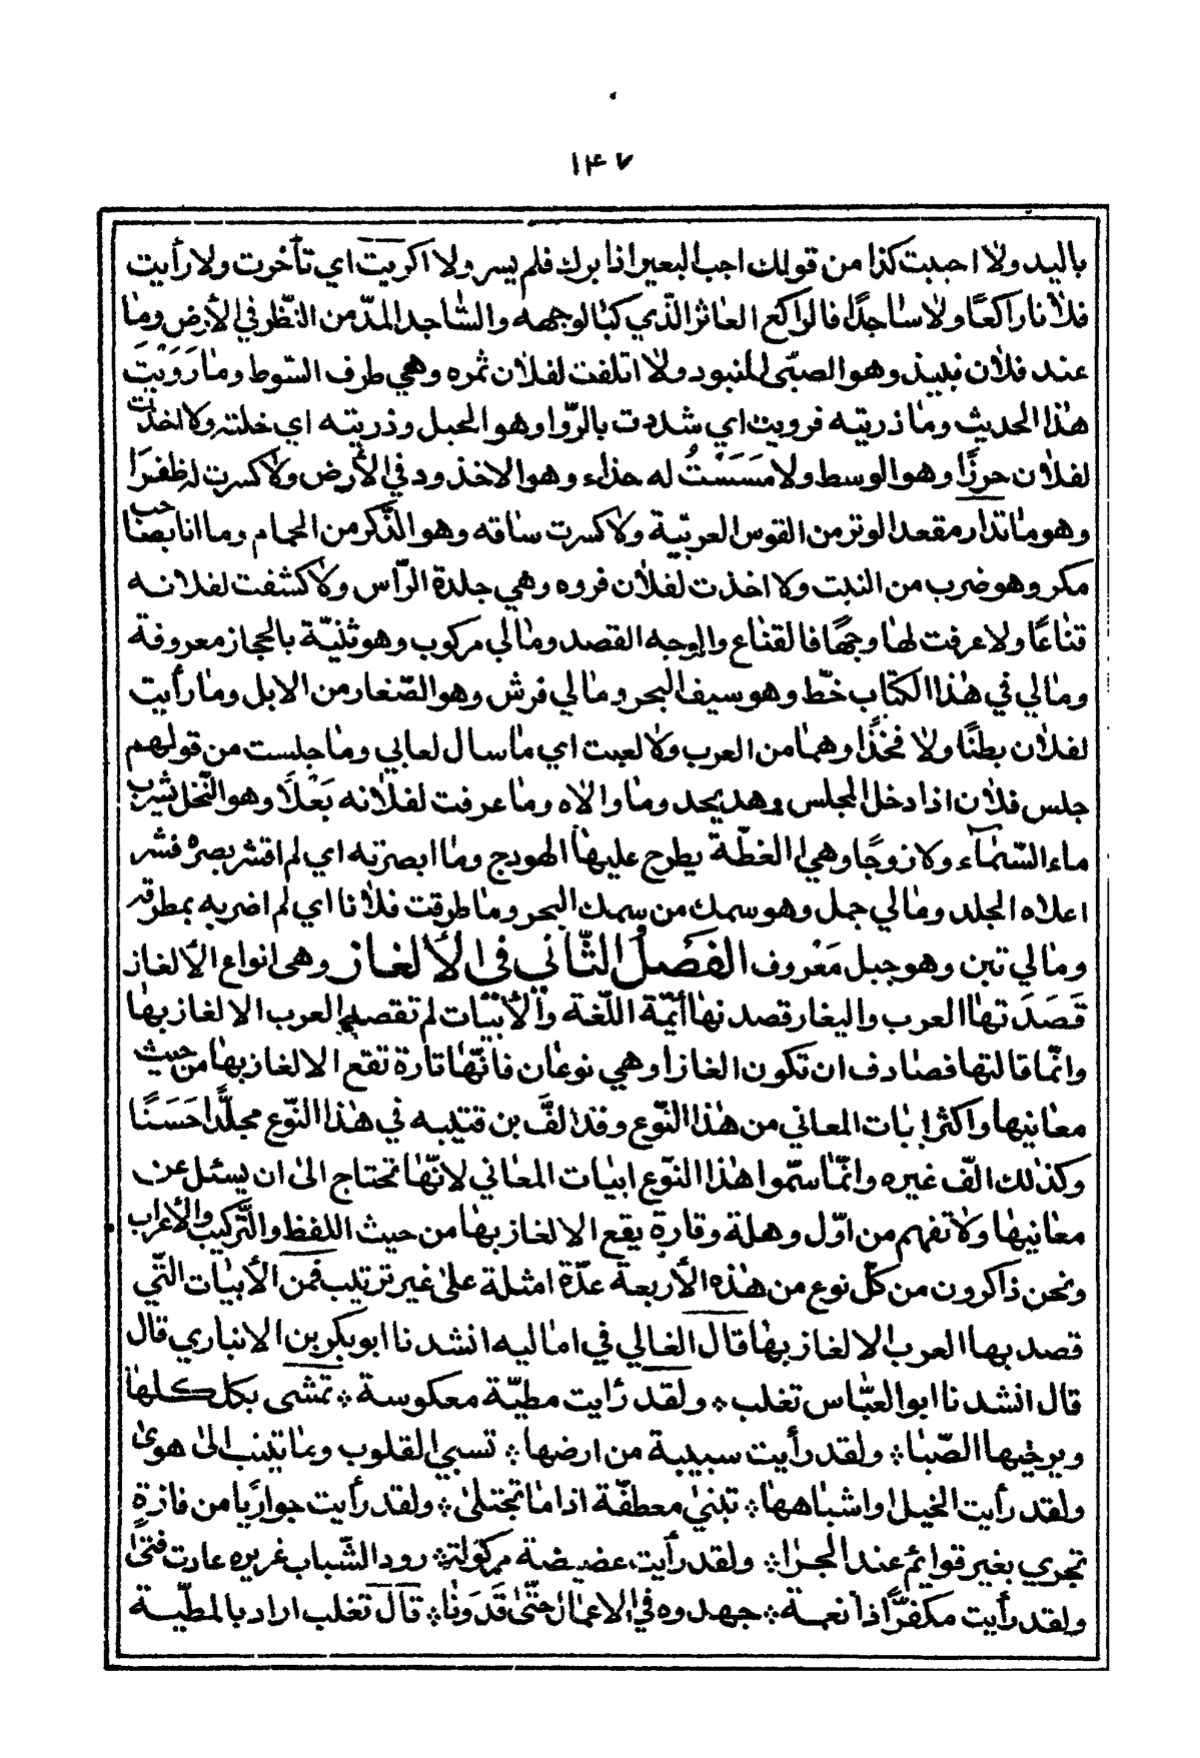 ١٤٧
باليد ولا احببت كذا من قولك اجب البعير اذا برك فلم يسر ولا اكريت اي تأخرت ولا رأيت
فلانا راكعًا ولا ساجدًا فالراكع العاثر الذّي كبا لوجهه والسّاجد المدّمن النّظر في الأرض وما
عند فلان نبيذ وهو الصبّى المنبود ولا اتلفت لفلان ثمره وهي طرف السّوط وما رَوَيْتَ
هذا الحديث وما ذريته فرويت اي شددت بالرّوا وهو الحبل وذريته اي خلته ولا اخذت
لفلان حرزًا وهو الوسط ولا مَسَسْتُ له حذاء وهو الاخذود في الأرض ولا كسرت له ظفرَا
وهو ما تدار مقعد الوتر من القوس العربيّة ولا كسرت ساقه وهو الذّكر من الحمام وما انا بصاحب
مكر وهو ضرب من النبت ولا اخذت لفلان فروه وهي جلدة الرّأس ولا كشفت لفلانه
قناعًا ولا عرفت لها وجهًا فالقناع والوجه القصد ومالي مركوب وهو ثنيّة بالحجاز معروفة
ومالي في هذا الكتاب خطّ وهو سيف البحر ومالي فرش وهو الصّغار من الابل وما رأيت
لفلان بطنًا ولا فخذًا وهما من العرب ولا لعبت اي ما سال لعابي وما جلست من قولهم
جلس فلان اذا دخل المجلس وهد يحد وما والاه وما عرفت لفلانه بَعْلًا وهو النّخل يشرب
ماء السّمآء ولا زوجًا وهي الغطّة يطرح عليها الهودج وما ابصرته اي لم اقشر بصره فشر
اعلاه الجلد ومالي جمل وهو سمك من سمك البحر وما طرقت فلانا اي لم اضربه بمطرقه
ومالي تبن وهو جبل مَعْروف الفَصْلُ الثّاني في الألغاز وهي انواع الألغاز
قَصَدَتها العرب واليغار قصدتها أئمّة اللّغة والأبيّات لم تقصد العرب الالغاز بها
وانّما قالتها فصادف ان تكون الغازا وهي نوعان فانّها تارة تقع الالغاز بها من حيث
معانيها واكثر ابات المعاني من هذا النّوع وقد الفَّ بن قتيبه في هذا النّوع مجلّدًا حَسَنًا
وكذلك الّف غيره وانّما سمّوا هذا النّوع ابيات المعاني لانّها تحتاج الى ان يسئل عن
معانيها ولا تفهم من اوّل وهلة وقارة يقع الالغاز بها من حيث اللفظ والتّركيب والأعراب
ونحن ذاكرون من كلّ نوع من هذه الأربعة عدّة امثلة على غير ترتيب فمن الأبيات التّي
قصد بها العرب الالغاز بها قال الغالي في اماليه انشدنا ابو بكر بن الانباري قال
قال انشدنا ابو العبّاس تغلب ❊ ولقد رأيت مطيّة معكوسة ❊ تمشى بكلكلها
ويرخيها الصّبا ❊ ولقد رأيت سبيبة من ارضها ❊ تسبي القلوب وما تينب الى هوى
ولقد رأيت الخيل او اشباهها ❊ تبني معطفّة اذا ما تجتلى ❊ ولقد رأيت جواريًا من فازةٍ
تجري بغير قوائم عند الجرا ❊ ولقد رأيت عضيضة مركولة ❊ رود الشّباب غريره عادت فتى
ولقد رأيت مكفرًّا ذا نعمة ❊ جهدوه في الاعمال حتّى قد ونا ❊ قال تغلب اراد بالمطيّة